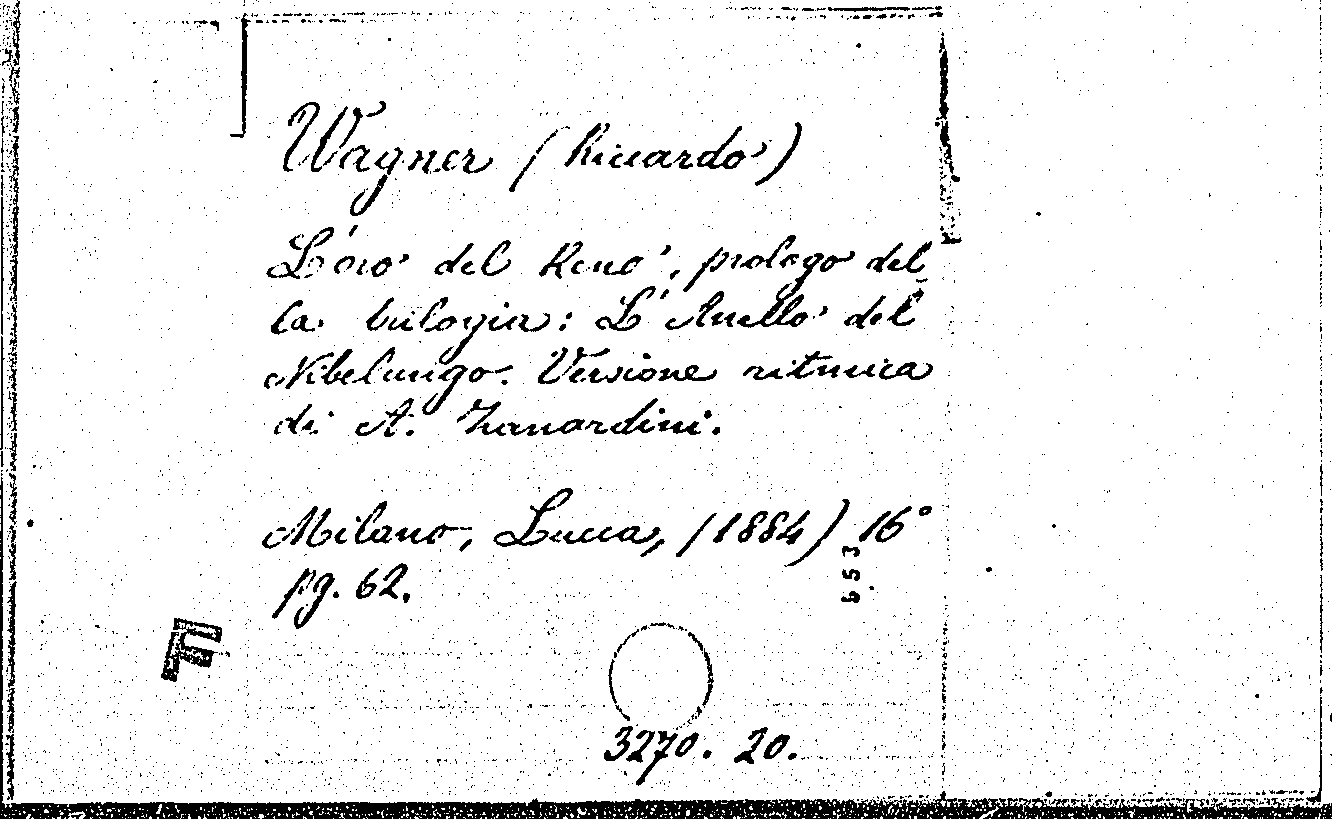 Wagner (Riccardo)
L'oro del Reno, prologo del
la trilogia: L'Anello del
Nibelungo. Versione ritmica
di A. Zanardini.
Milano, Lucca, (1884) 16°
pg. 62.
553
F
3270. 20.